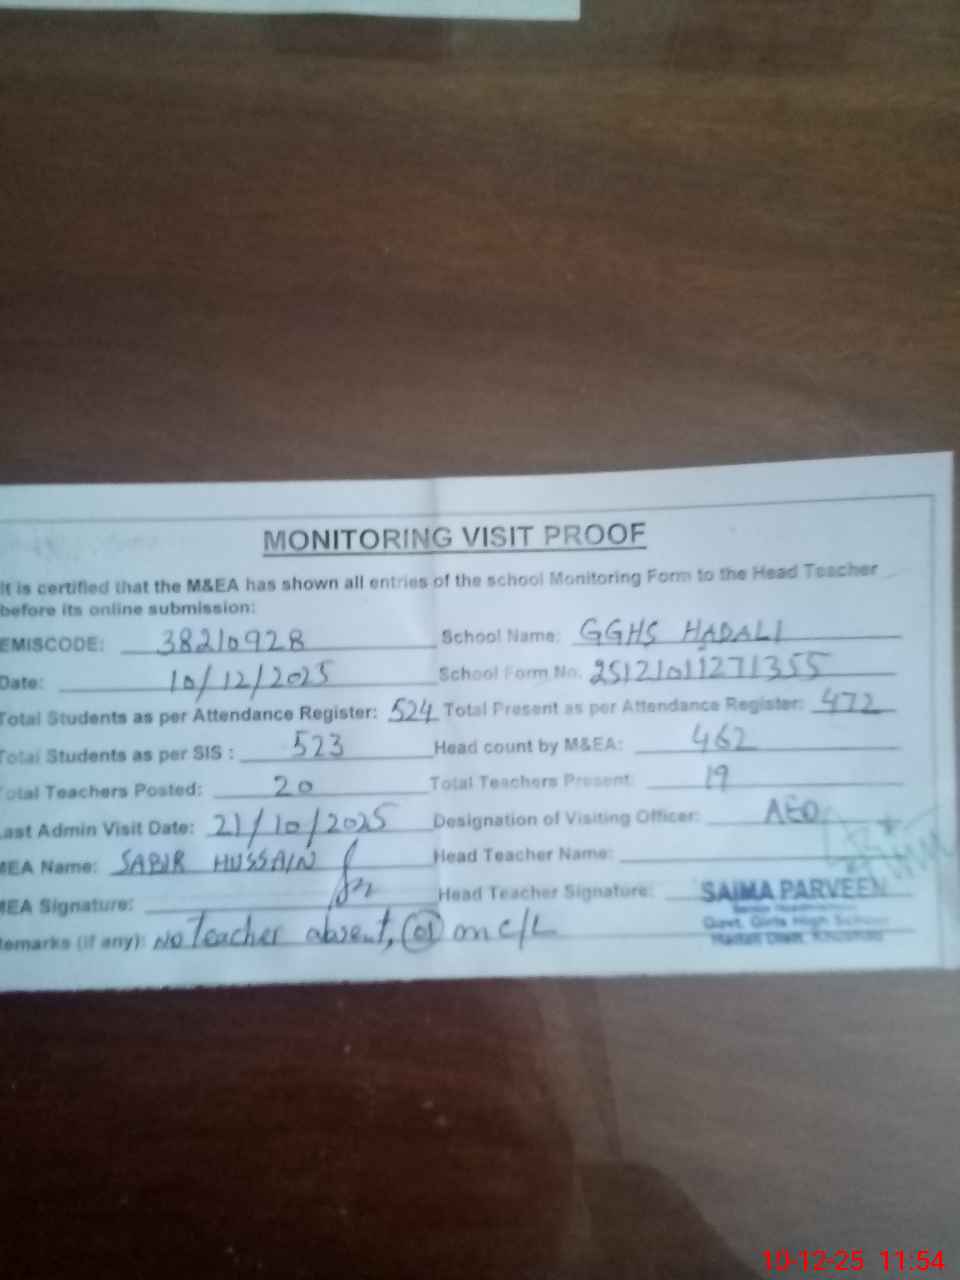 MONITORING VISIT PROOF
It is certified that the M&EA has shown all entries of the school Monitoring Form to the Head Teacher
before its online submission:
EMISCODE: 38210928 School Name: GGHS HADALI
Date: 10/12/2025 School Form No. 25121011271355
Total Students as per Attendance Register: 524 Total Present as per Attendance Register: 472
Total Students as per SIS : 523 Head count by M&EA: 462
Total Teachers Posted: 20 Total Teachers Present: 19
Last Admin Visit Date: 21/10/2025 Designation of Visiting Officer: AEO
MEA Name: SABIR HUSSAIN Head Teacher Name:
MEA Signature: Head Teacher Signature: SAIMA PARVEEN
Govt. Girls High School
Remarks (if any): No Teacher absent, 01 on C/L
10-12-25 11:54